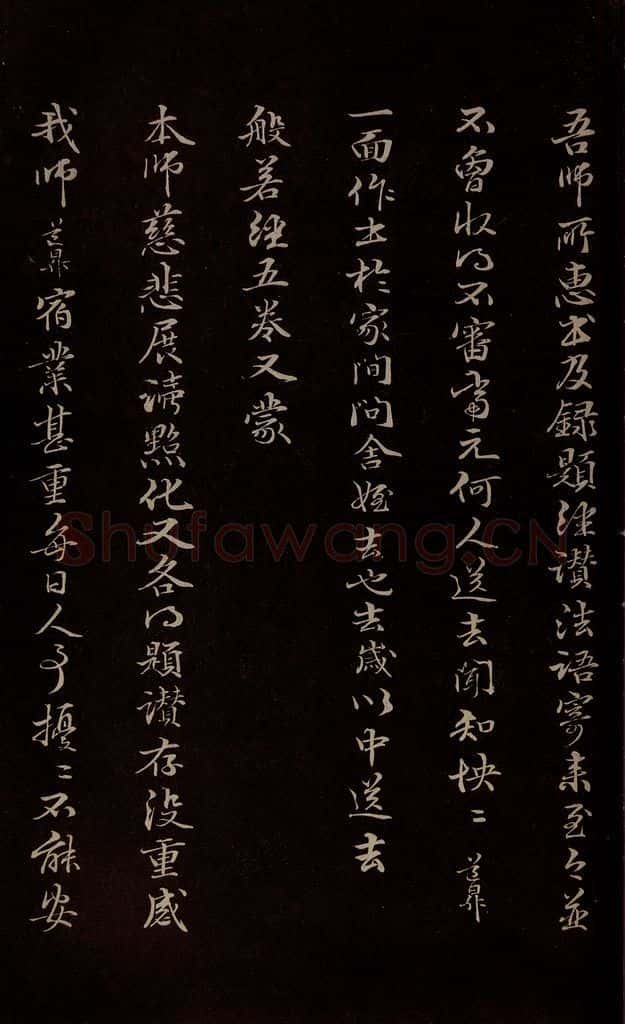 吾師所惠書及録題經讃法語寄来至今並
不曾收得不審當元何人送去聞知怏〻道昇
一面作書於家間問舍姪去也去歲以中送去
般若經五卷又蒙
本師慈悲展讀點化又各得題讃存没重感
我師道昇宿業甚重每日人事擾〻不能安
Shufawang.CN